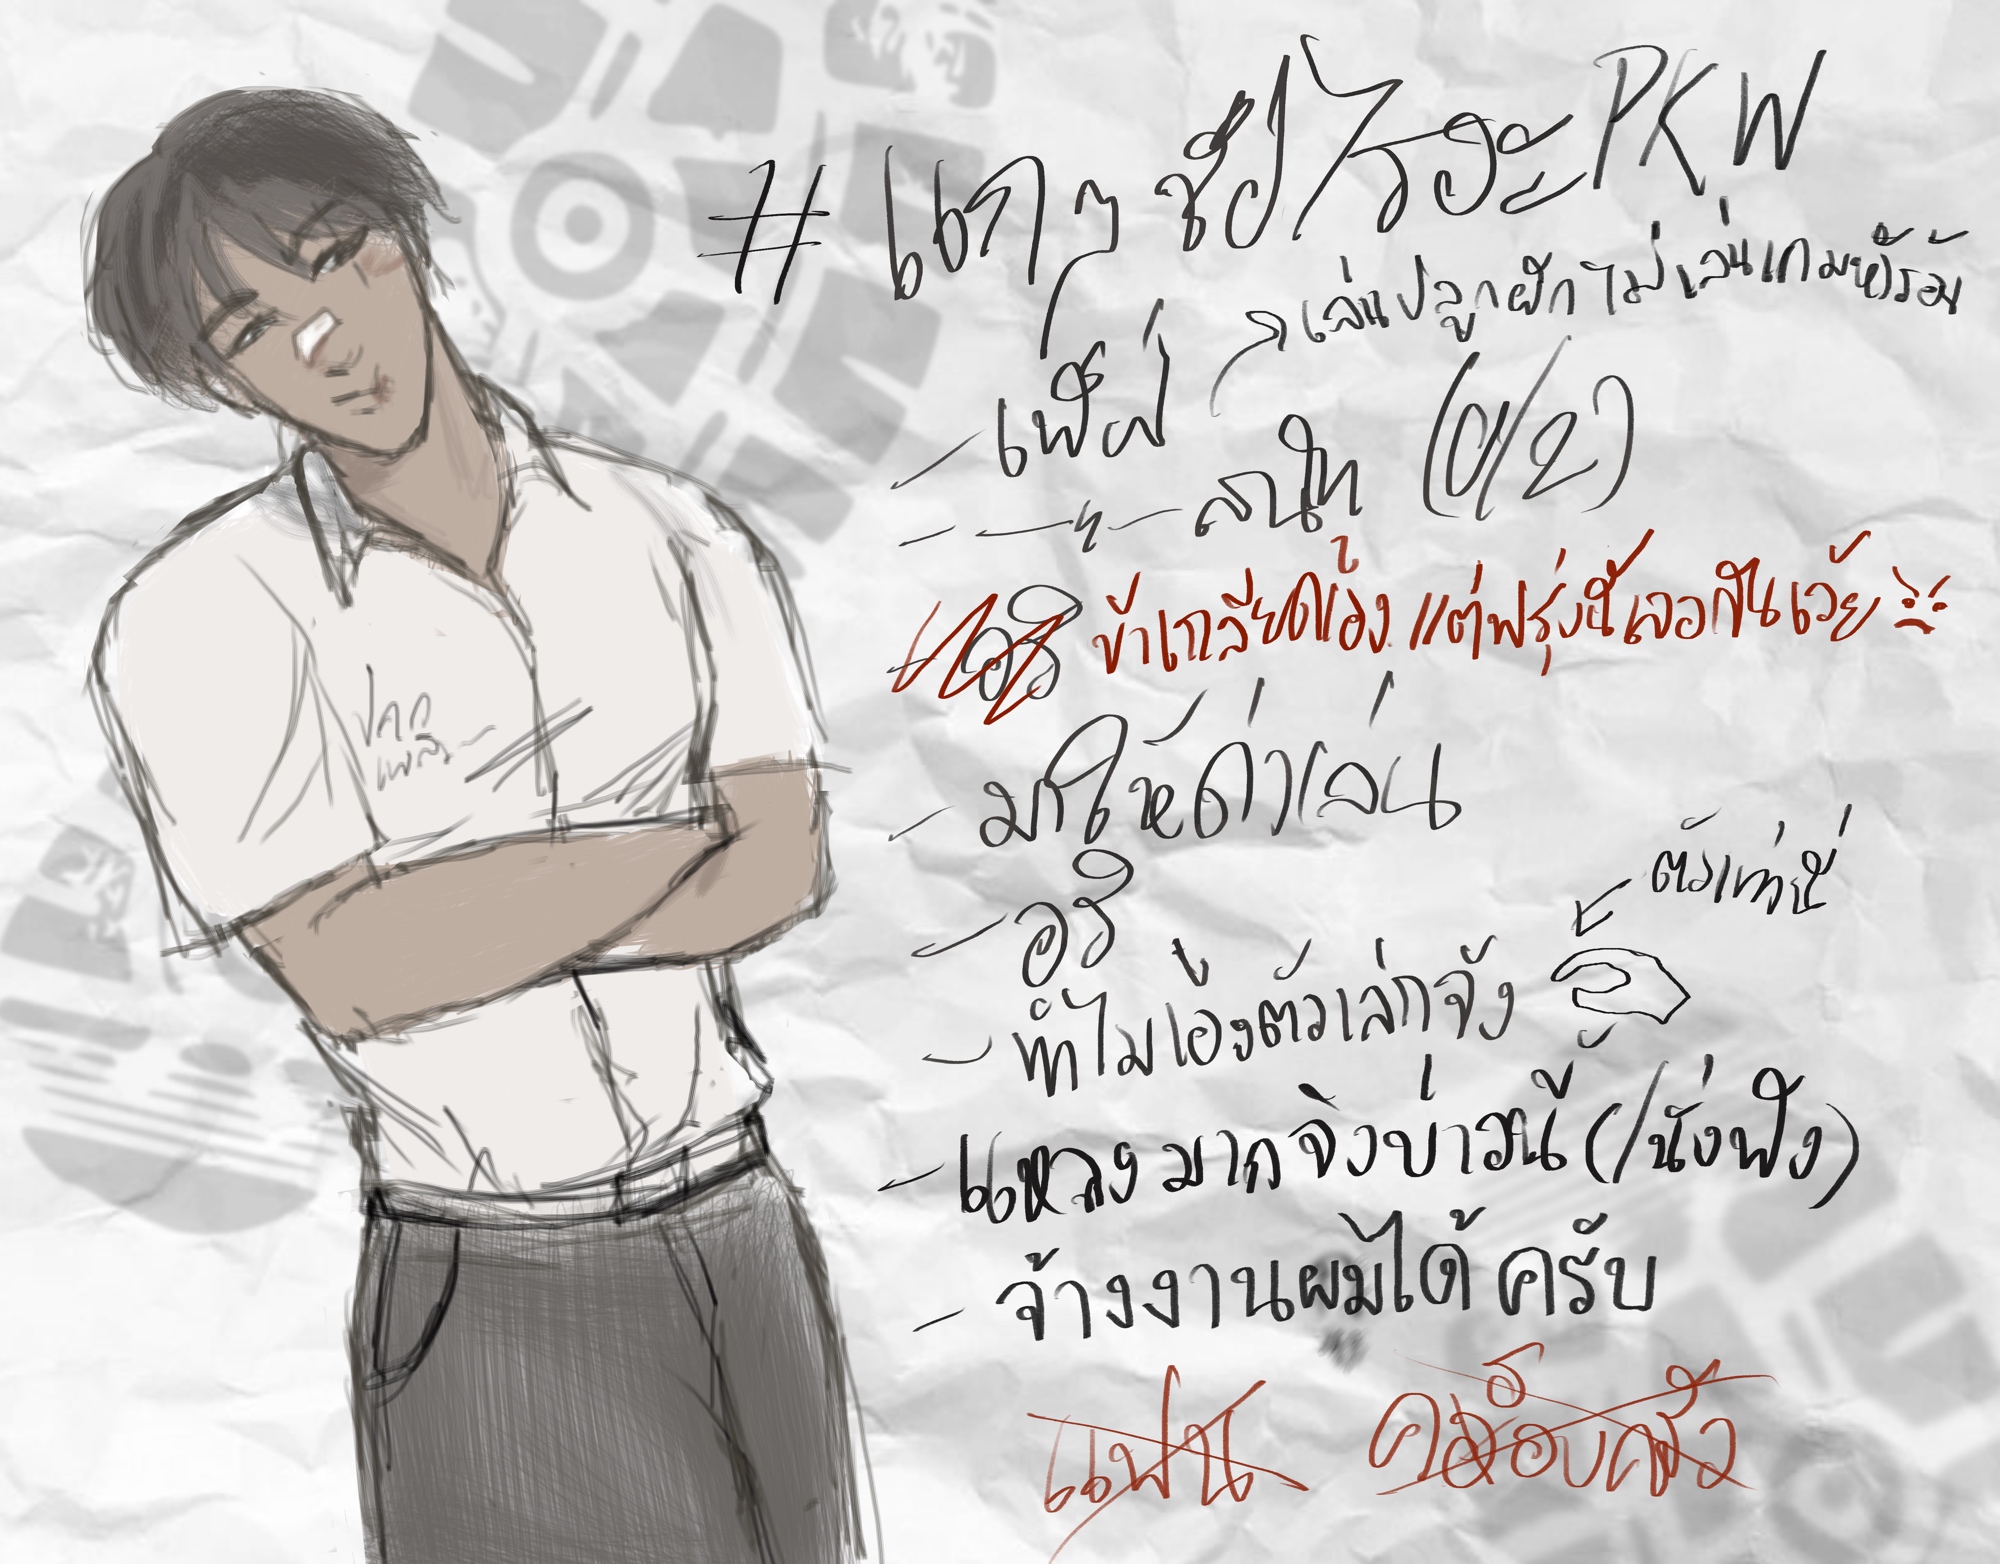 # แกๆ ชื่อไรอะ PKW
เล่นปลูกผัก ไม่เล่นเกมหัวร้อน
- เพื่อน
- —"— สนิท (0/2)
- อริ ข้าเกลียดเอ็ง แต่พรุ่งนี้เจอกันเว้ย
- มาให้ด่าเล่น
- อริ
ตัวเท่านี้
- ทำไมเอ็งตัวเล็กจัง
- แหลงมากจังบ่าวนี้ (/นั่งฟัง)
- จ้างงานผมได้ครับ
แฟน ครอบครัว